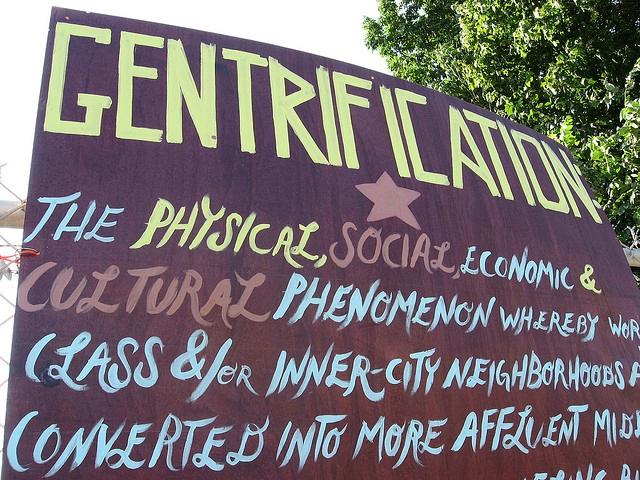 GENTRIFICATION-
THE PHYSICAL, SOCIAL, ECONOMIC &
CULTURAL PHENOMENON WHEREBY WOR
CLASS &/OR INNER-CITY NEIGHBORHOODS A
CONVERTED INTO MORE AFFLUENT MIDD